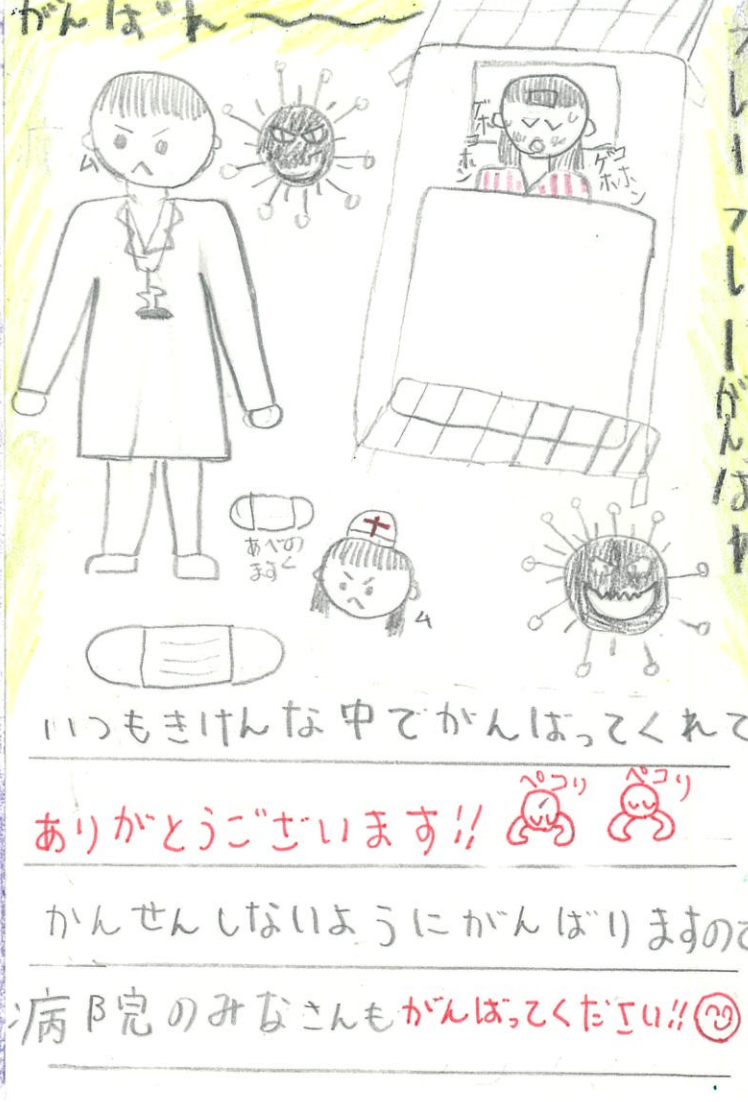 がんばれ〜〜
フレーフレーがんばれ
ム
ゲホ
コホン
ゲホ
コホン
あべの
ますく
ム
いつもきけんな中でがんばってくれて
ありがとうございます!! ペコリ ペコリ
かんせんしないようにがんばりますので
病院のみなさんもがんばってください!!